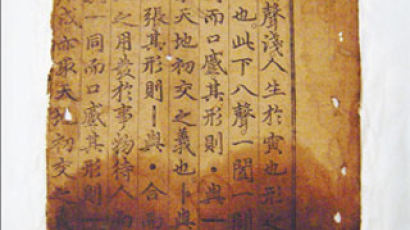 聲淺人生於寅也形
也此下八聲一闔一闢
同而口蹙其形則ㆍ與ㅡ
天地初交之義也ㅏ與
張其形則ㅣ與ㆍ合而
之用發於事物待人而
ㅡ同而口蹙其形則ㅡ
成亦取天地初交之義